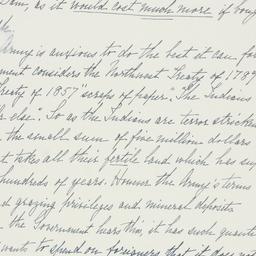 as it would cost much more if boug
Army is anxious to do the best it can for
ment considers the Northwest Treaty of 1789
reaty of 1857 "scraps of paper." The Indians
r else". So as the Indians are terror stricken
the small sum of five million dollars
t takes all their fertile land which has sup
hundreds of years. Honor the Army's terms
d grazing privileges and mineral deposits
the Government hears this, it has such quanti
wants to spend on foreigners that it does not